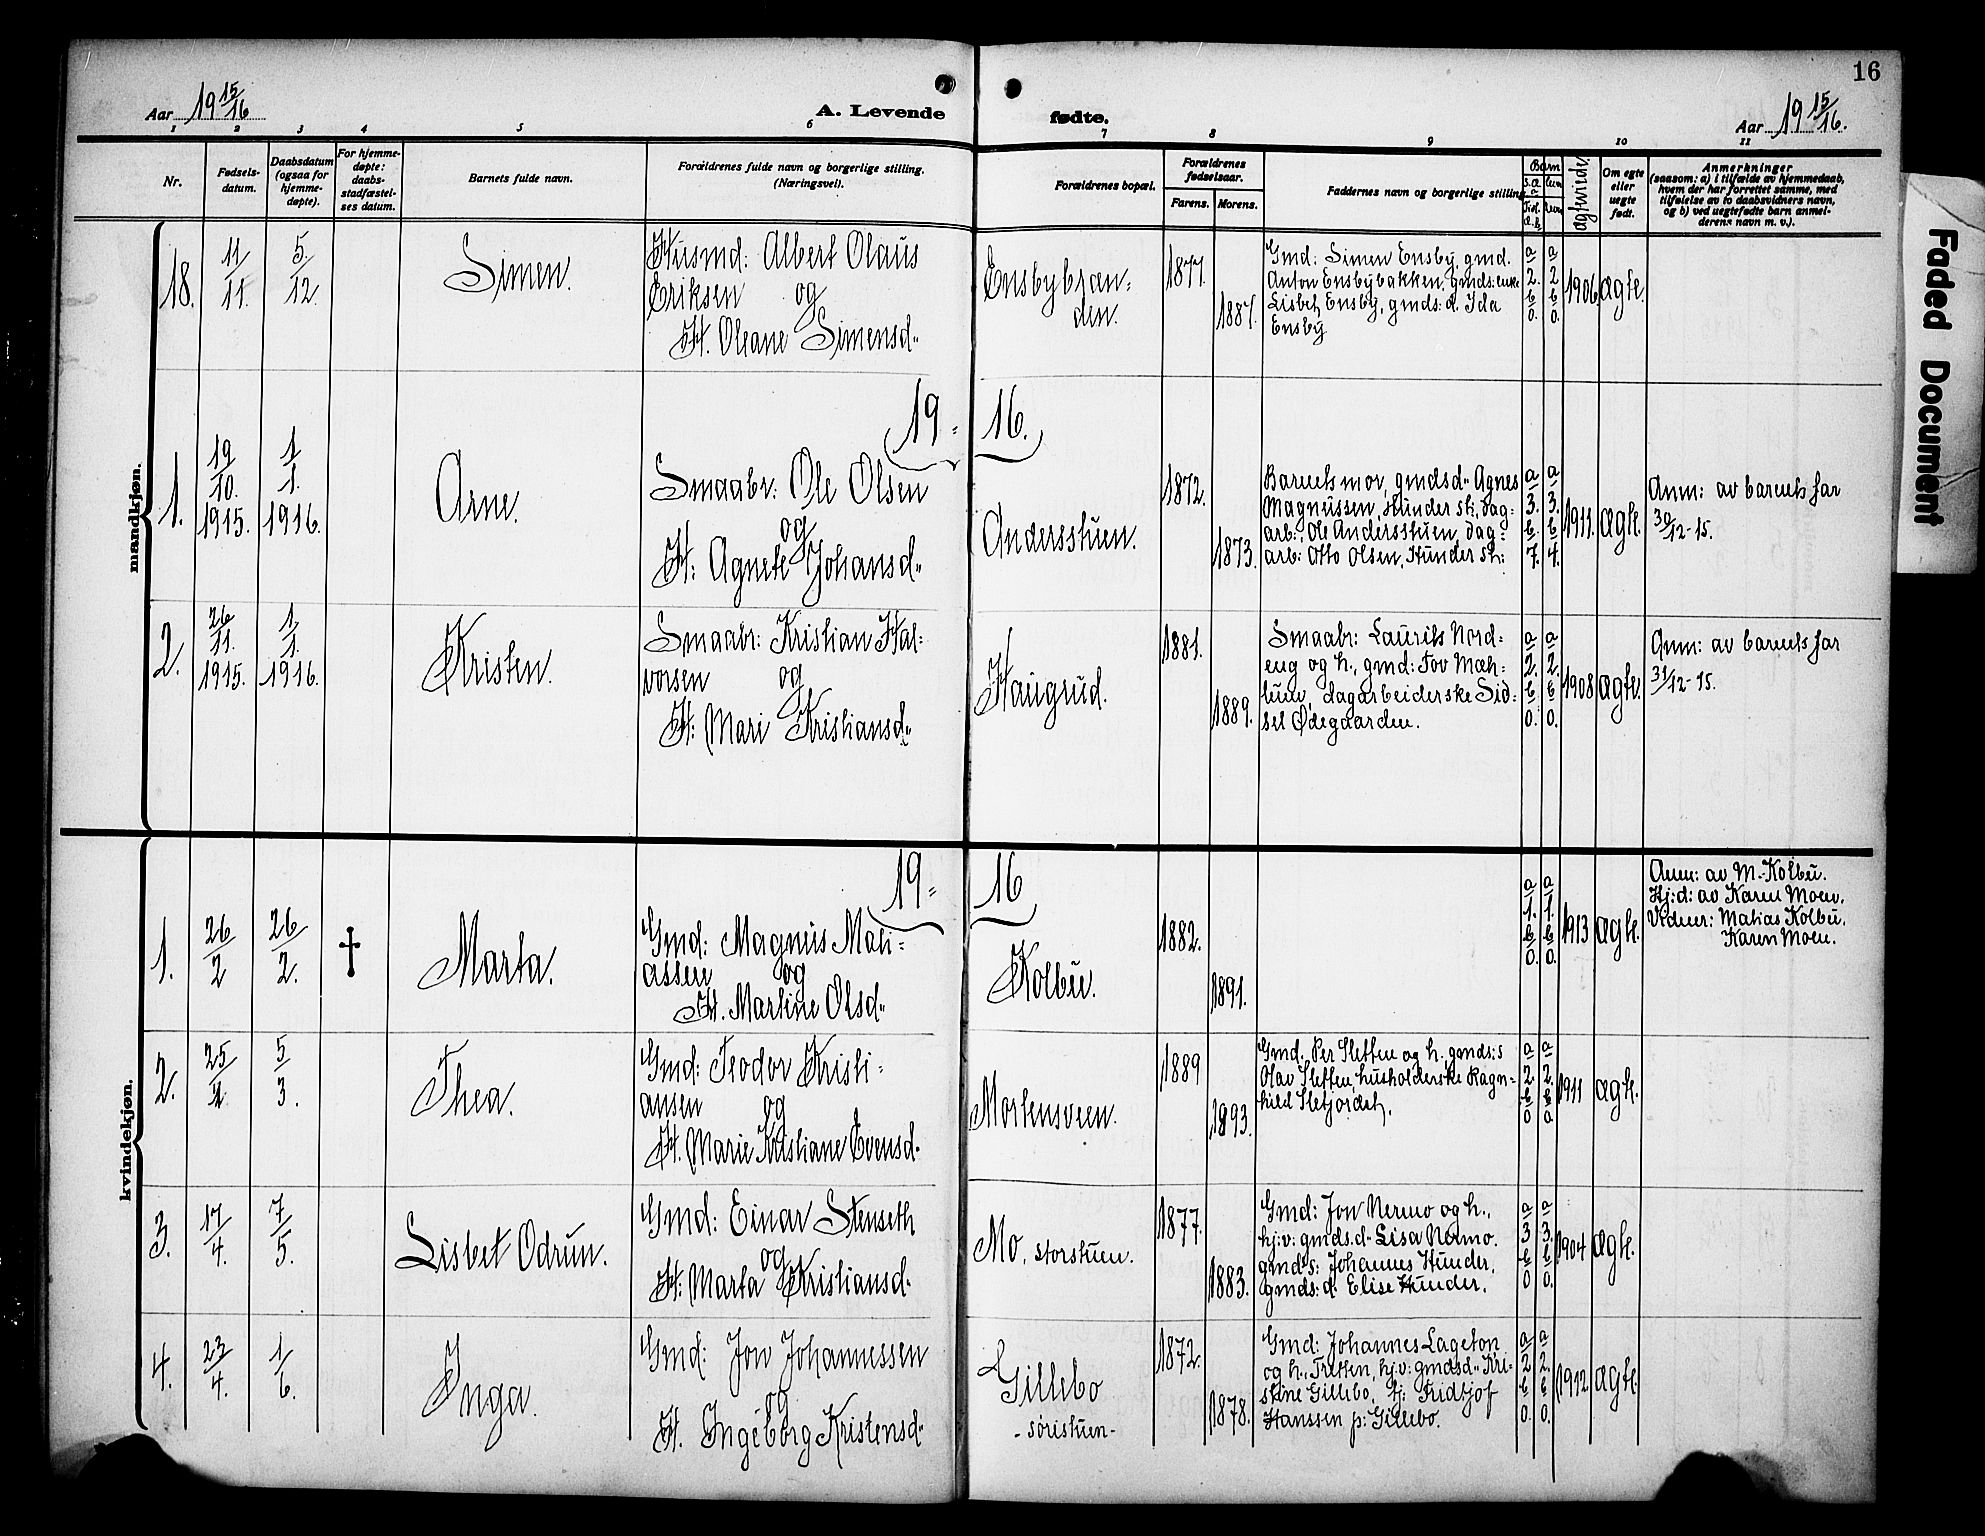 16
Aar 19 15/16
A. Levende
fødte.
Aar 19 15/16.
1 2 3 4 5 6 7 8 9 10 11
Nr.
Fødsels-
datum.
Daabsdatum
(ogsaa for
hjemme-
døpte).
For hjemme-
døpte:
daabs-
stadfæstel-
ses datum.
Barnets fulde navn.
Forældrenes fulde navn og borgerlige stilling.
(Næringsvei).
Forældrenes bopæl.
Forældrenes
fødselsaar.
Farens. Morens.
Faddernes navn og borgerlige stilling
Barn
Om egte
eller
uegte
født.
Anmerkninger
(saasom: a) i tilfælde av hjemmedaab,
hvem der har forrettet samme, med
tilføielse av to daabsvidners navn,
og b) ved uegtefødte barn anmel-
derens navn m. v.).
mandkjøn.
18.
11/11.
5./12.
Simen.
Husmd: Albert Olaus
Eriksen og
H. Oleane Simensd"
Ensbybræn-
den.
1877.
1887.
Gmd: Simen Ensby, gmd.
Anton Ensbybakken, gmds: enke
Lisbet Ensby, gmds: d. Ida
Ensby
a 2. b 0.
a 2 b 0.
1906
ægte.
19=16.
1.
19/10.
1915.
1/1.
1916.
Arne.
Smaabr: Ole Olsen
og
H: Agnete Johansd"
Andersstuen.
1872.
1873.
Barnets mor, gmdsd" Agnes
Magnussen, Hunder st:, dag-
arb: Ole Andersstuen, dag-
arb: Otto Olsen, Hunder st:
a 3. b. 7.
a 3. b 4.
1911.
ægte.
Anm: av barnets far
30/12-15.
2.
26/11.
1915.
1/1.
1916.
Kristen.
Smaabr: Kristian Hal-
vorsen og
H: Mari Kristiansd"
Haugrud.
1881.
1889.
Smaabr: Laurits Nord-
eng og h., gmd: Tov Mæh-
lum, dagarbeiderske Sid-
sel Ødegaarden.
a 2. b 0.
a 2. b 0.
1908
ægte.
Anm: av barnets far
31/12-15.
kvindekjøn.
19=16
1.
26/2
26/2.
†
Marta.
Gmd: Magnus Mati-
assen og
H. Martine Olsd"
Kolbu.
1882.
1891.
a 1. b 0.
a 1. b 0.
1913
ægte.
Anm: av M. Kolbu.
Hj:d: av Karen Moen.
Vidner: Matias Kolbu.
Karen Moen.
2.
25/1
5/3.
Thea.
Gmd: Teodor Kristi-
ansen og
H. Marie Kristiane Evensd.
Mortensveen.
1889
1893.
Gmd. Per Sletten og h., gmds:s
Olav Sletten, husholderske Ragn-
hild Slefjordet.
a 2. b 0
a 2. b 0
1911
ægte.
3.
17/4.
7/5.
Lisbet Odrun.
Gmd: Einar Stenseth
og
H: Marta Kristiansd.
Mo, storstuen.
1877.
1883.
Gmd: Jon Nermo og h.,
hj:v: gmds.d" Lisa Nermo.
gmds: Johannes Hunder,
gmds: d. Elise Hunder.
a 3 b 0
a 3. b 0.
1904
ægte.
4.
23/4.
1/6.
Inga.
Gmd: Jon Johannessen
og
H. Ingeborg Kristensd"
Gillebo
- söristuen-
1872.
1878.
Gmd: Johannes Lageton
og h., Tretten, hj.v: gmdsd" Kri-
stine Gillebo, tj: Fridtjof
Hanssen p: Gillebo.
a 2 b 0.
a 2. b 0.
1912
ægte.
Faded Document